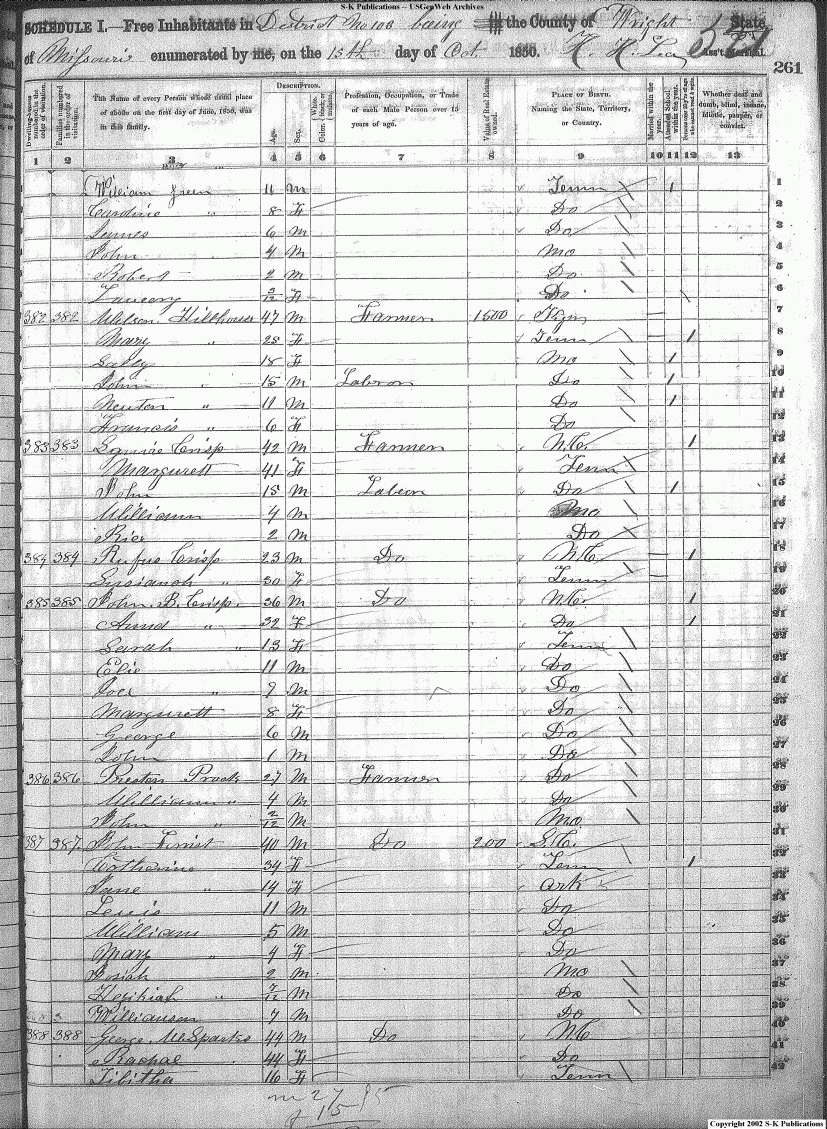 S-K Publications -- USGenWeb Archives
SCHEDULE I.—Free Inhabitants in District No 100 being the County of Wright State
of Missouri enumerated by me, on the 15th day of Oct 1850. H. H. Ass't Marshal.
261
DESCRIPTION.
Dwelling-houses numbered in the order of visitation.
Families numbered in the order of visitation.
The Name of every Person whose usual place of abode on the first day of June, 1850, was in this family.
Age.
Sex.
Color, White, black, or mulatto.
Profession, Occupation, or Trade of each Male Person over 15 years of age.
Value of Real Estate owned.
PLACE OF BIRTH. Naming the State, Territory, or Country.
Married within the year.
Attended School within the year.
Persons over 20 y'rs of age who cannot read & write.
Whether deaf and dumb, blind, insane, idiotic, pauper, or convict.
1 2 3 4 5 6 7 8 9 10 11 12 13
William Green 11 M Tenn 1 1
Caroline " 8 F Do 2
James 6 M Do 3
John 4 M Mo 4
Robert 2 M Do 5
3/12 F Do 6
382 382 Wilson Hillhouse 47 M Farmer 1500 7
Mary " 28 F Tenn 1 8
Sally 18 F Mo 1 9
John " 15 M Do 1 10
Newton " 11 M Do 1 11
Francis " 6 F Do 12
383 383 Squire Crisp 42 M Farmer N.C. 1 13
Margurett 41 F Tenn
John 18 M Do 1 15
William 4 M Mo 16
2 M Do 17
384 384 Rufus Crisp 23 M Do N.C. 1 18
" 30 F Tenn 19
385 385 John B. Crisp 36 M Do N.C. 1 20
" 32 F Do 1 21
Sarah " 13 F Tenn 22
11 M Do 23
Joel " 9 M Do 24
Margurett 8 F Do 25
George 6 M Do 26
John 1 M Do 27
386 386 Preston Prock 27 M Farmer Do 28
William " 4 M Do 29
John " 2/12 M Mo 30
387 387 John 40 M Do 200 S.C. 31
Catharine 34 F Tenn 1 32
Jane " 14 F Ark 33
Lewis 11 M Do 34
William 5 M Do 35
Mary " 4 F Do 36
Josiah 2 M Mo 37
Hezikiah " 7/12 M Do 38
Williamson 7 M Do 39
388 388 George McSparks 44 M Do N.C. 40
Rachael 44 F Do 41
Tibitha 16 F Tenn 42
m 27
f 15
Copyright 2002 S-K Publications